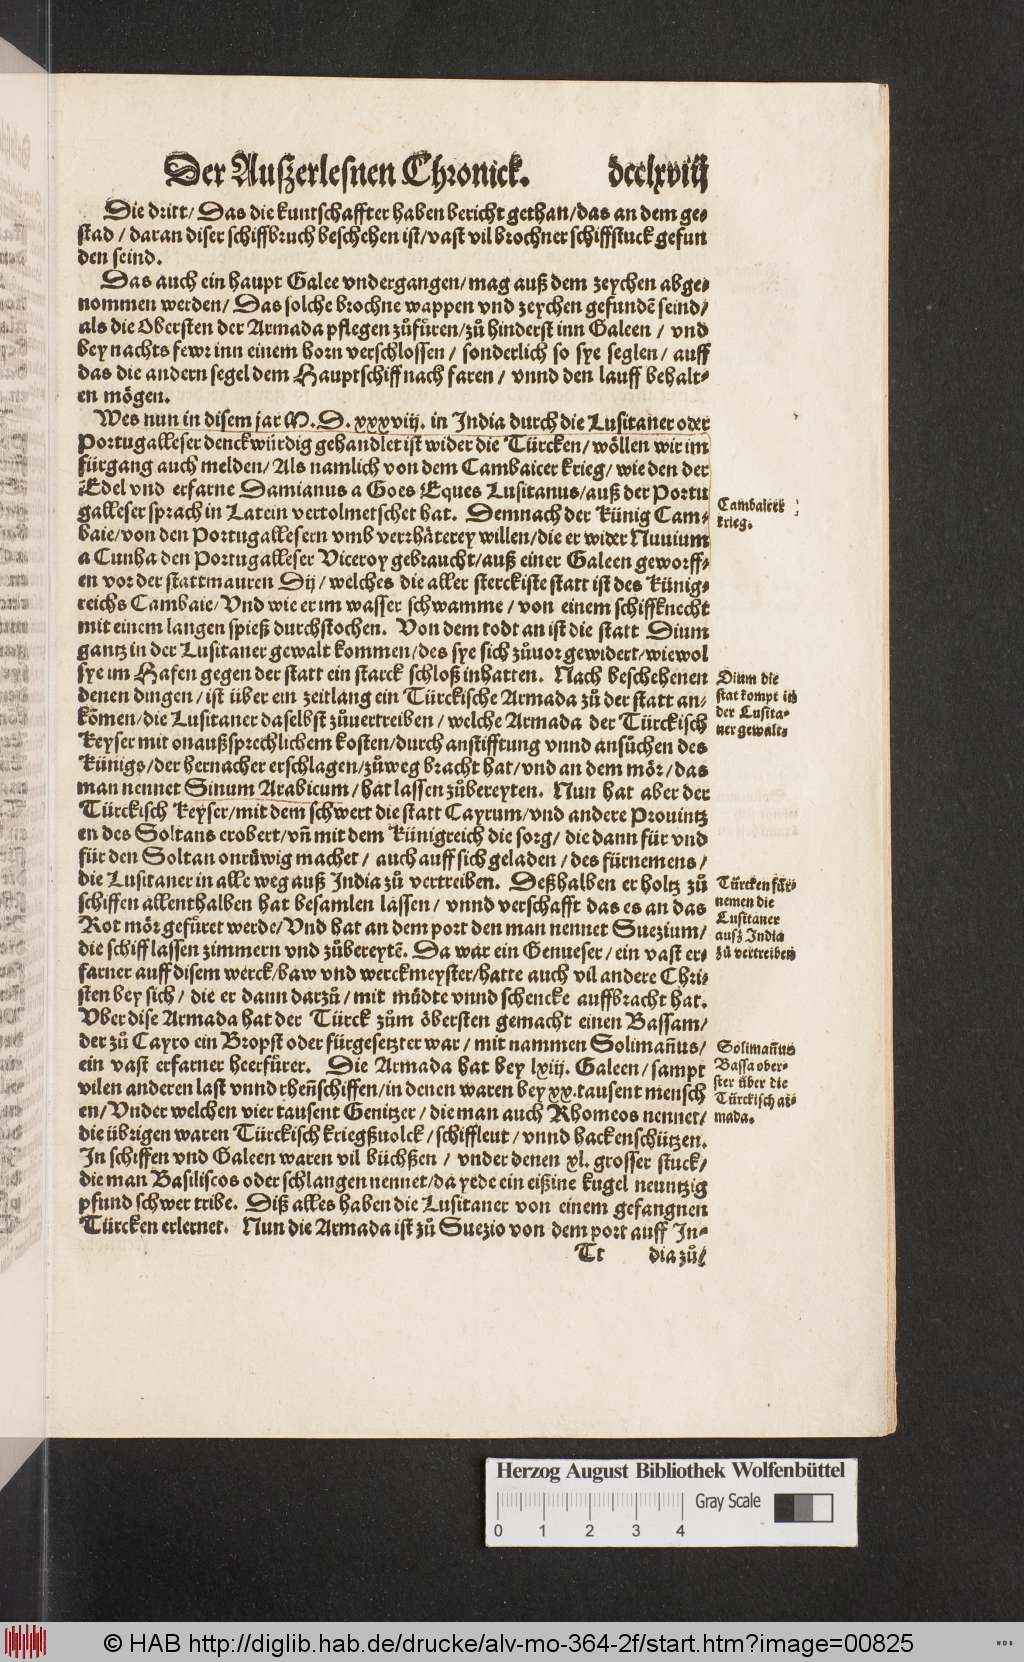 Der Auszerlesnen Chronick. dcclxviij
Die dritt/ Das die kuntschaffter haben bericht gethan/das an dem ge⸗
stad / daran diser schiffbruch beschehen ist/vast vil brochner schiffstuck gefun
den seind.
Das auch ein haupt Galee vndergangen/mag auß dem zeychen abge⸗
nommen werden/ Das solche brochne wappen vnd zeychen gefundẽ seind/
als die Obersten der Armada pflegen zůfüren/zů hinderst inn Galeen / vnd
bey nachts fewr inn einem horn verschlossen / sonderlich so sye seglen / auff
das die andern segel dem Hauptschiff nach faren / vnnd den lauff behalt⸗
en mögen.
Wes nun in disem jar M.D.xxxviij. in India durch die Lusitaner oder
Portugalleser denckwürdig gehandlet ist wider die Türcken/wöllen wir im
fürgang auch melden/Als namlich von dem Cambaicer krieg/wie den der
Edel vnd erfarne Damianus a Goes Eques Lusitanus/auß der Portu
galleser sprach in Latein vertolmetschet hat. Demnach der Künig Cam⸗
baie/von den Portugallesern vmb verrhäterey willen/die er wider Nuuium
a Cunha den Portugalleser Viceroy gebraucht/auß einer Galeen geworff⸗
en vor der stattmauren Dij/welches die aller sterckiste statt ist des Künig⸗
reichs Cambaie/Vnd wie er im wasser schwamme/von einem schiffknecht
mit einem langen spieß durchstochen. Von dem todt an ist die statt Dium
gantz in der Lusitaner gewalt kommen/des sye sich zůuor gewidert/wiewol
sye im Hafen gegen der statt ein starck schloß inhatten. Nach beschehenen
denen dingen/ist über ein zeitlang ein Türckische Armada zů der statt an⸗
kõmen/die Lusitaner daselbst zůuertreiben/welche Armada der Türckisch
Keyser mit onaußsprechlichem kosten/durch anstifftung vnnd ansůchen des
Künigs/der hernacher erschlagen/zůweg bracht hat/vnd an dem mör/das
man nennet Sinum Arabicum/hat lassen zůbereyten. Nun hat aber der
Türckisch Keyser/mit dem schwert die statt Cayrum/vnd andere Prouintz
en des Soltans erobert/vñ mit dem Künigreich die sorg/die dann für vnd
für den Soltan onrüwig machet/ auch auff sich geladen/des fürnemens/
die Lusitaner in alle weg auß India zů vertreiben. Deßhalben er holtz zů
schiffen allenthalben hat besamlen lassen/ vnnd verschafft das es an das
Rot mör gefüret werde/Vnd hat an dem port den man nennet Suezium/
die schiff lassen zimmern vnd zůbereytẽ. Da war ein Genueser/ein vast er⸗
farner auff disem werck/baw vnd werckmeyster/hatte auch vil andere Chri⸗
sten bey sich/ die er dann darzů/mit mödte vnnd schencke auffbracht hat.
Vber dise Armada hat der Türck zům öbersten gemacht einen Bassam/
der zů Cayro ein Bropst oder fürgesetzter war/mit nammen Solimañus/
ein vast erfarner heerfürer. Die Armada hat bey lxiij. Galeen/sampt
vilen anderen last vnnd rheñschiffen/in denen waren bey xx.tausent mensch
en/Vnder welchen vier tausent Genitzer/die man auch Rhomeos nennet/
die übrigen waren Türckisch kriegßuolck/schiffleut/vnnd hackenschützen.
In schiffen vnd Galeen waren vil büchßen / vnder denen xl. grosser stuck/
die man Basiliscos oder schlangen nennet/da yede ein eißine kugel neuntzig
pfund schwer tribe. Diß alles haben die Lusitaner von einem gefangnen
Türcken erlernet. Nun die Armada ist zů Suezio von dem port auff In⸗
Tt dia zů/
Cambaicer
krieg.
Dium die
stat kompt in
der Lusita⸗
ner gewalt.
Türcken für⸗
nemen die
Lusitaner
ausz India
zů vertreiben
Solimañus
Bassa ober⸗
ster über die
Türckisch ar⸗
mada.
Herzog August Bibliothek Wolfenbüttel
Gray Scale
0 1 2 3 4
© HAB http://diglib.hab.de/drucke/alv-mo-364-2f/start.htm?image=00825